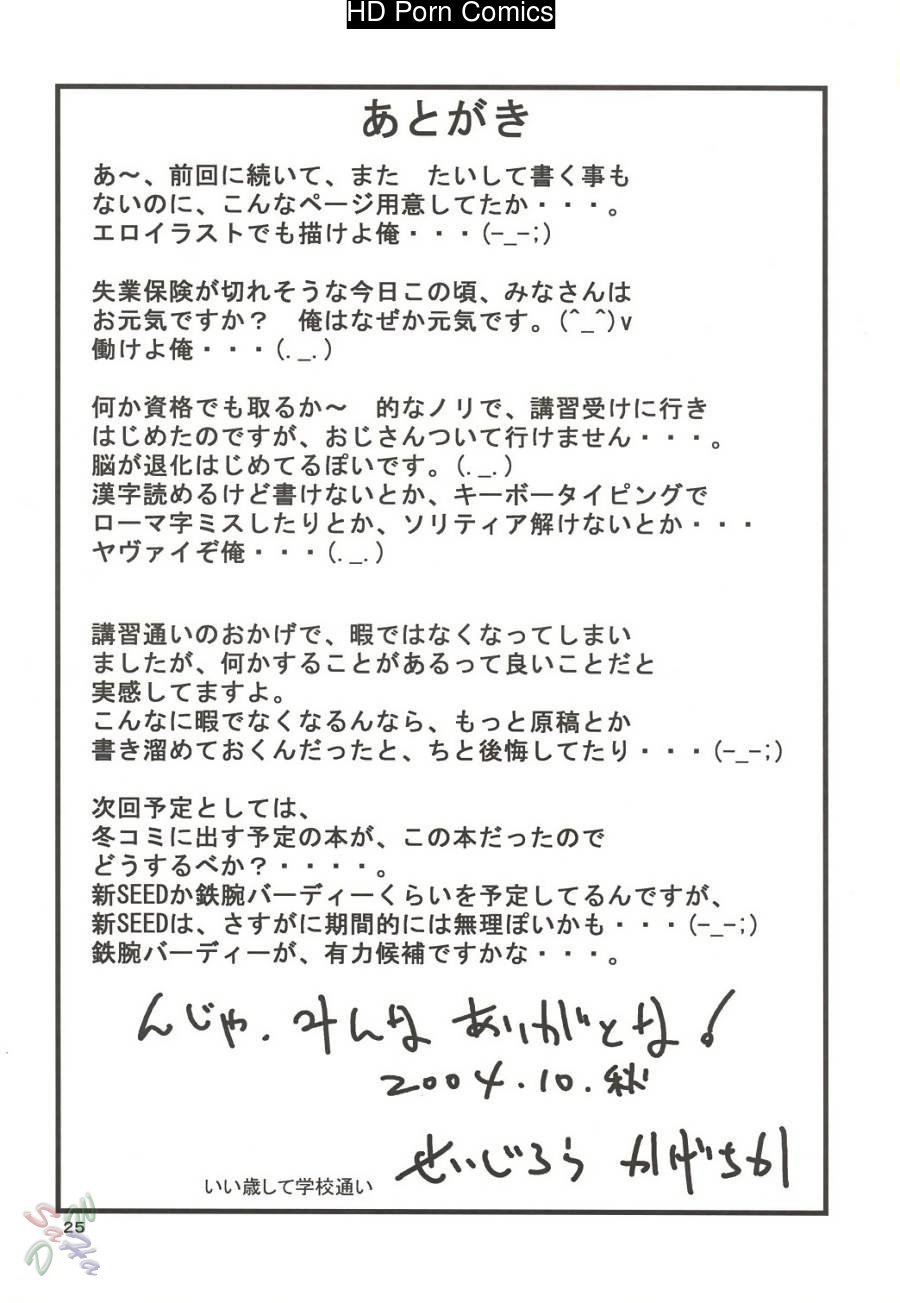 HD Porn Comics
あとがき
あ～、前回に続いて、また　たいして書く事も
ないのに、こんなページ用意してたか・・・。
エロイラストでも描けよ俺・・・(-_-;)
失業保険が切れそうな今日この頃、みなさんは
お元気ですか？　俺はなぜか元気です。(^_^)v
働けよ俺・・・(._.)
何か資格でも取るか～　的なノリで、講習受けに行き
はじめたのですが、おじさんついて行けません・・・。
脳が退化はじめてるぽいです。(._.)
漢字読めるけど書けないとか、キーボータイピングで
ローマ字ミスしたりとか、ソリティア解けないとか・・・
ヤヴァイぞ俺・・・(._.)
講習通いのおかげで、暇ではなくなってしまい
ましたが、何かすることがあるって良いことだと
実感してますよ。
こんなに暇でなくなるんなら、もっと原稿とか
書き溜めておくんだったと、ちと後悔してたり・・・(-_-;)
次回予定としては、
冬コミに出す予定の本が、この本だったので
どうするべか？・・・・。
新SEEDか鉄腕バーディーくらいを予定してるんですが、
新SEEDは、さすがに期間的には無理ぽいかも・・・(-_-;)
鉄腕バーディーが、有力候補ですかな・・・。
んじゃ.みんなありがとな!
2004.10.秋
いい歳して学校通い　せいじろう かげちか
25